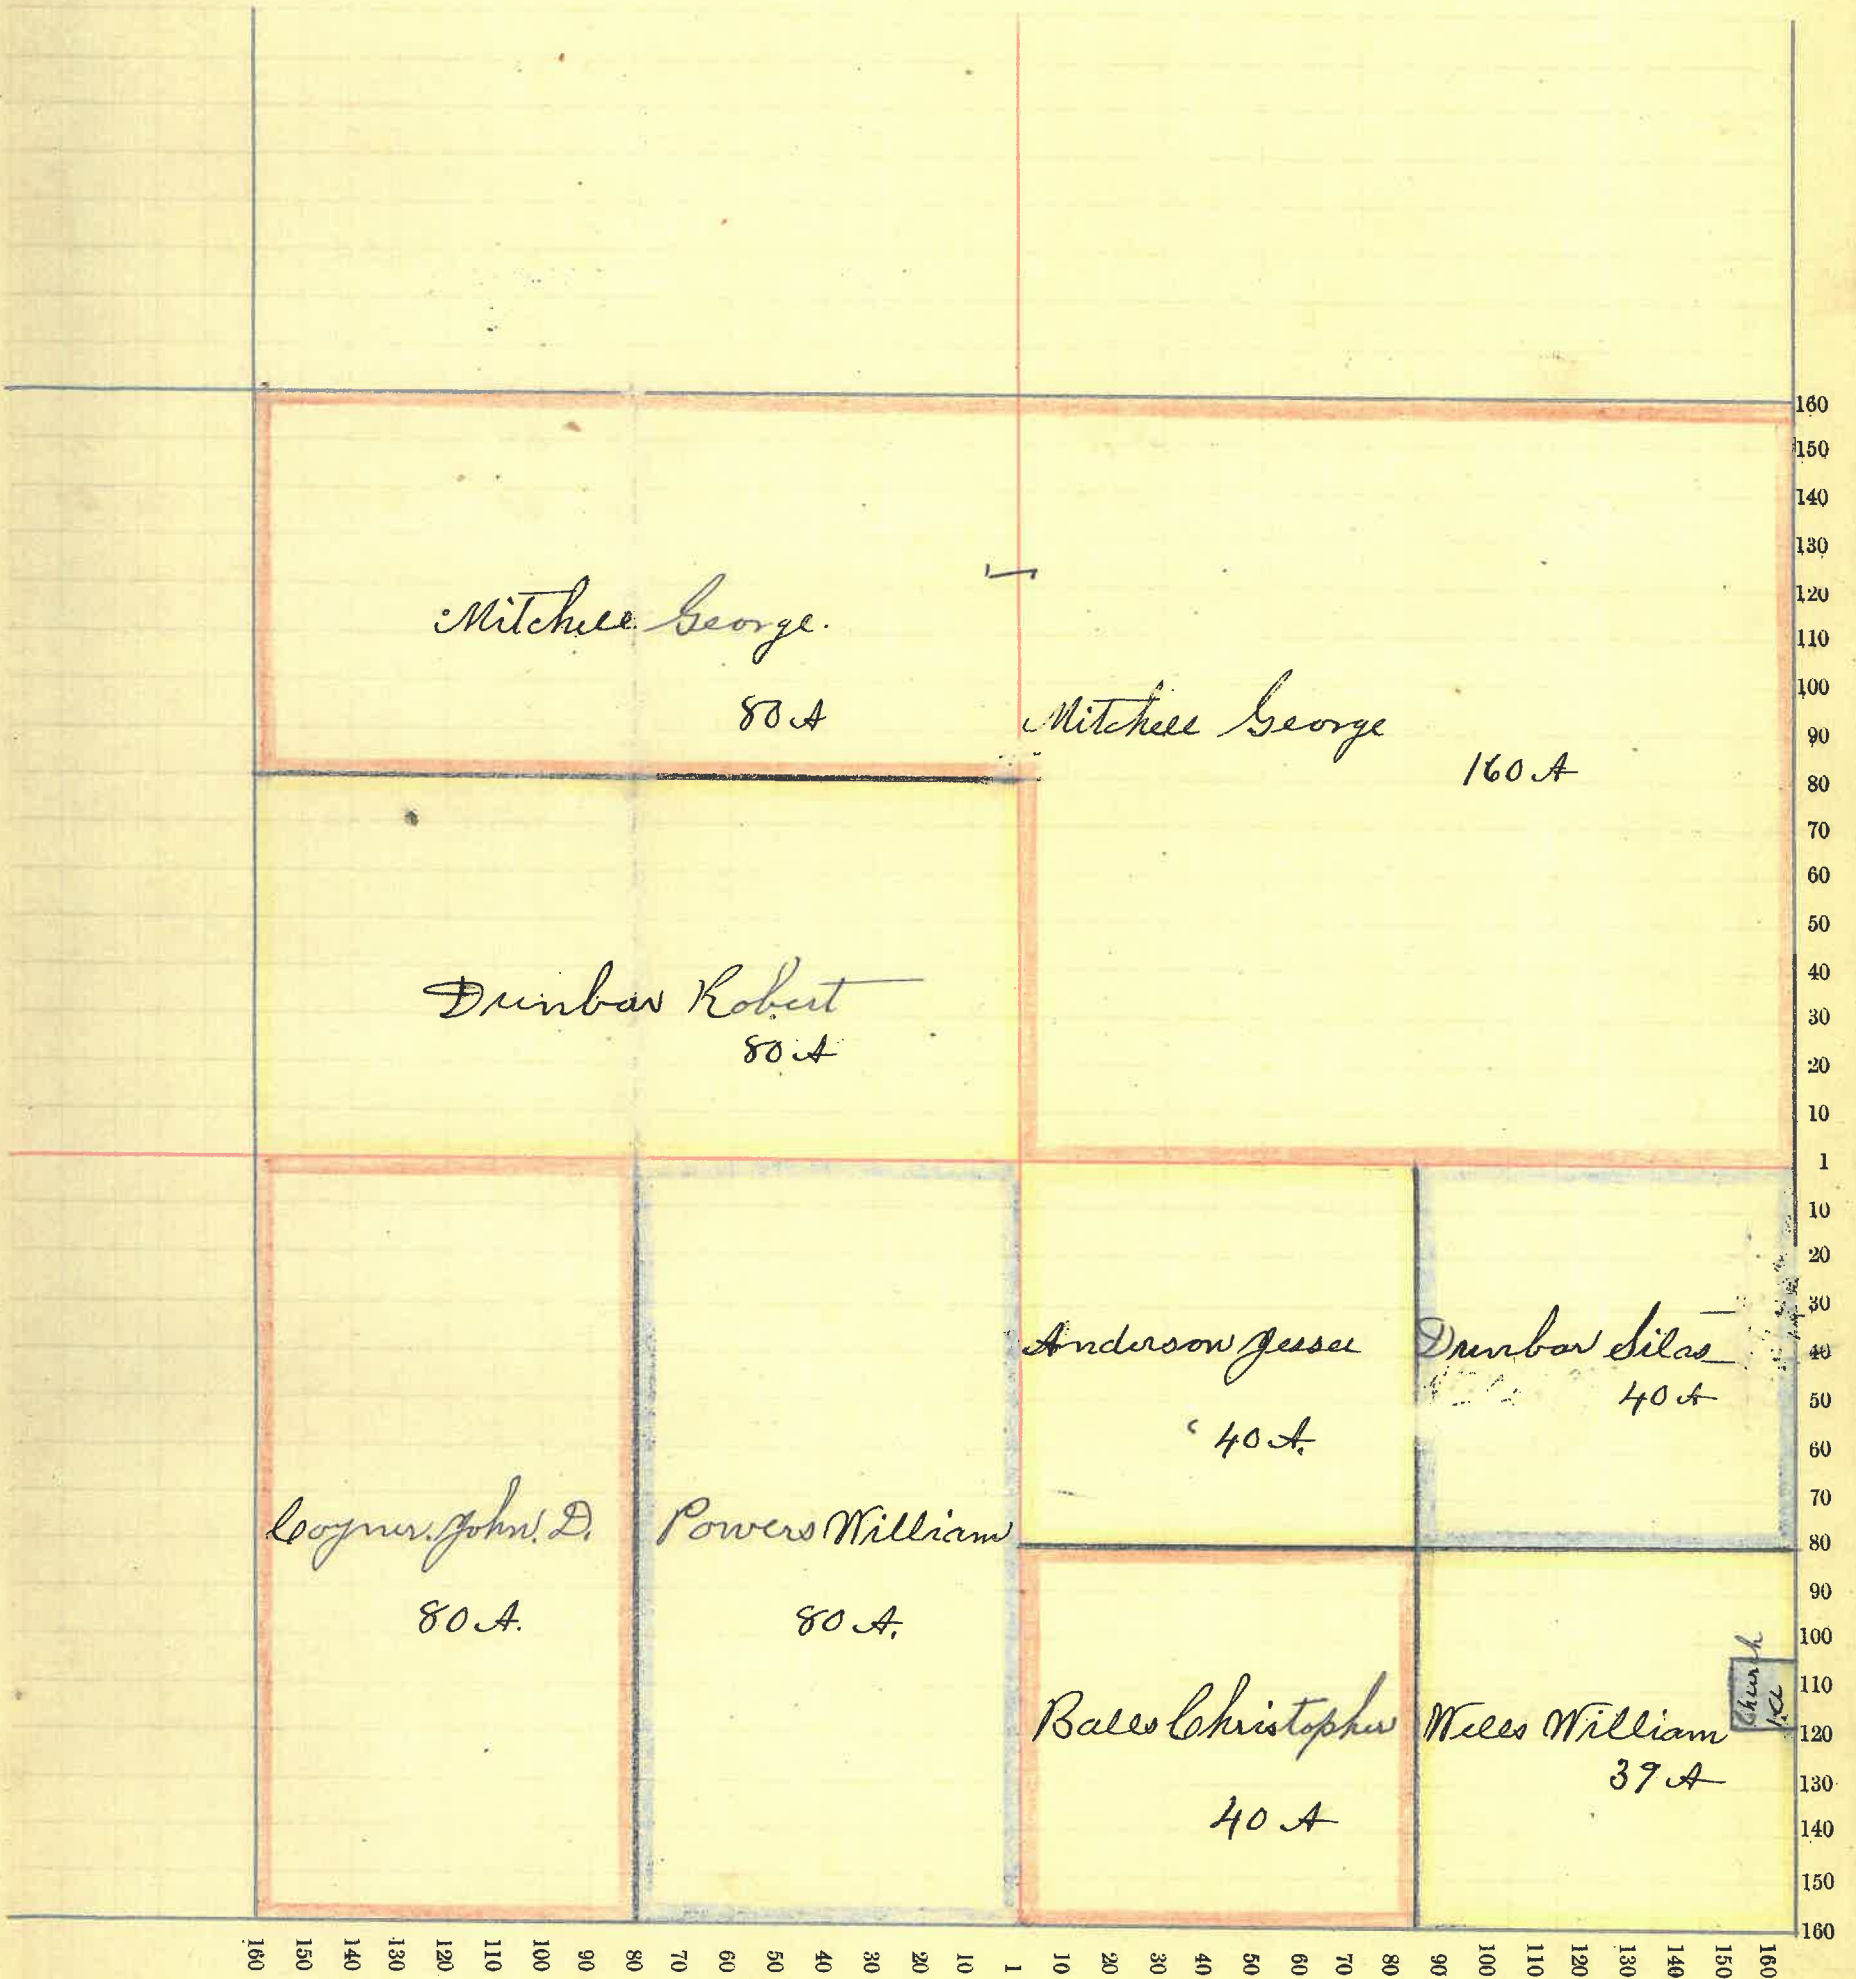 Mitchell George.
80 A
Mitchell George
160 A
Dunbar Robert
80 A
Anderson Jesse
40 A.
Dunbar Silas
40 A
Coyner. John. D.
80 A.
Powers William
80 A.
Balls Christopher
40 A
Wells William
39 A
Church
1 a
160
150
140
130
120
110
100
90
80
70
60
50
40
30
20
10
1
10
20
30
40
50
60
70
80
90
100
110
120
130
140
150
160
160 150 140 130 120 110 100 90 80 70 60 50 40 30 20 10 1 10 20 30 40 50 60 70 80 90 100 110 120 130 140 150 160